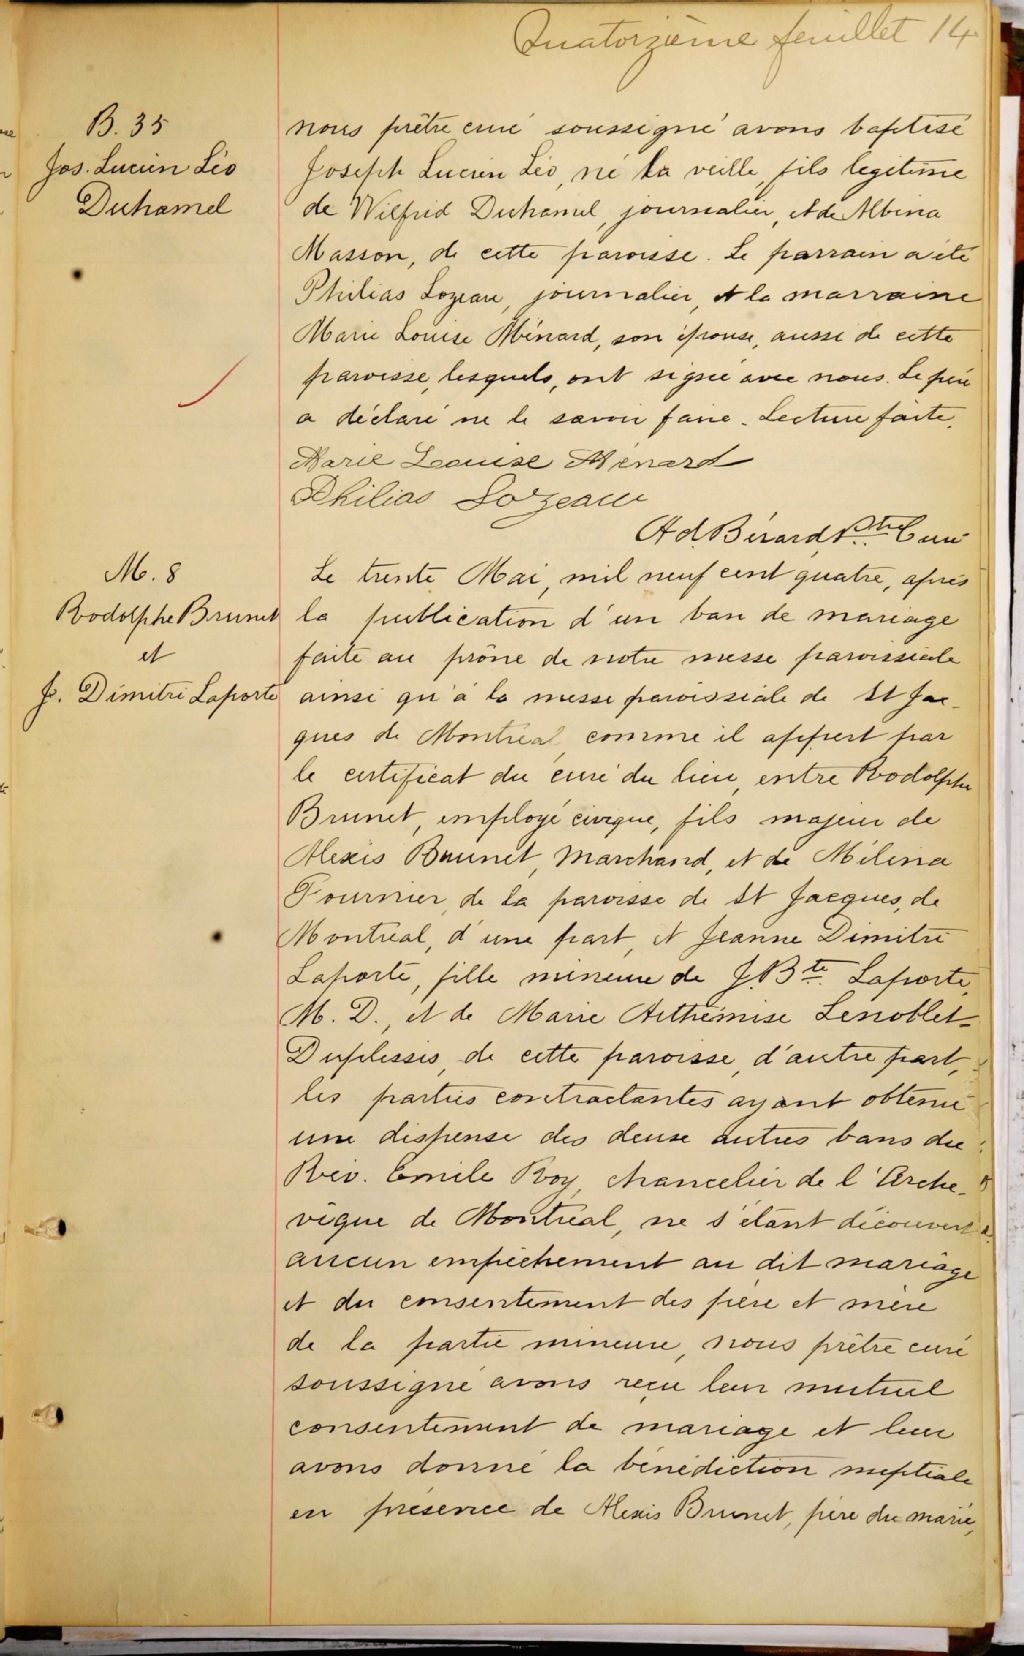 Quatorzième feuillet 14
B. 35
Jos. Lucien Léo
Duhamel
nous prêtre curé soussigné avons baptisé
Joseph Lucien Léo, né la veille, fils legitime
de Wilfrid Duhamel, journalier, et de Albina
Masson, de cette paroisse. Le parrain a été
Philias Lozeau, journalier, et la marraine
Marie Louise Ménard, son épouse, aussi de cette
paroisse, lesquels, ont signé avec nous. Le père
a déclaré ne le savoir faire. Lecture faite.
Marie Louise Ménard
Philias Lozeau
Ad. Bérard, Ptre Curé
M. 8
Rodolphe Brunet
et
J. Dimitri Laporte
Le trente Mai, mil neuf cent quatre, après
la publication d'un ban de mariage
faite au prône de notre messe paroissiale
ainsi qu'à la messe paroissiale de St Jac-
ques de Montréal, comme il appert par
le certificat du curé du lieu, entre Rodolphe
Brunet, employé civique, fils majeur de
Alexis Brunet, Marchand, et de Mélina
Fournier, de la paroisse de St Jacques, de
Montréal, d'une part, et Jeanne Dimitri
Laporte, fille mineure de J. Bte. Laporte,
M. D., et de Marie Arthémise Lenoblet-
Duplessis, de cette paroisse, d'autre part,
les parties contractantes ayant obtenu
une dispense des deux autres bans du
Rév. Emile Roy, chancelier de l'Arche-
vêque de Montréal, ne s'étant découvert
aucun empêchement au dit mariage
et du consentement des père et mère
de la partie mineure, nous prêtre curé
soussigné avons reçu leur mutuel
consentement de mariage et leur
avons donné la bénédiction nuptiale
en présence de Alexis Brunet, père du marié,